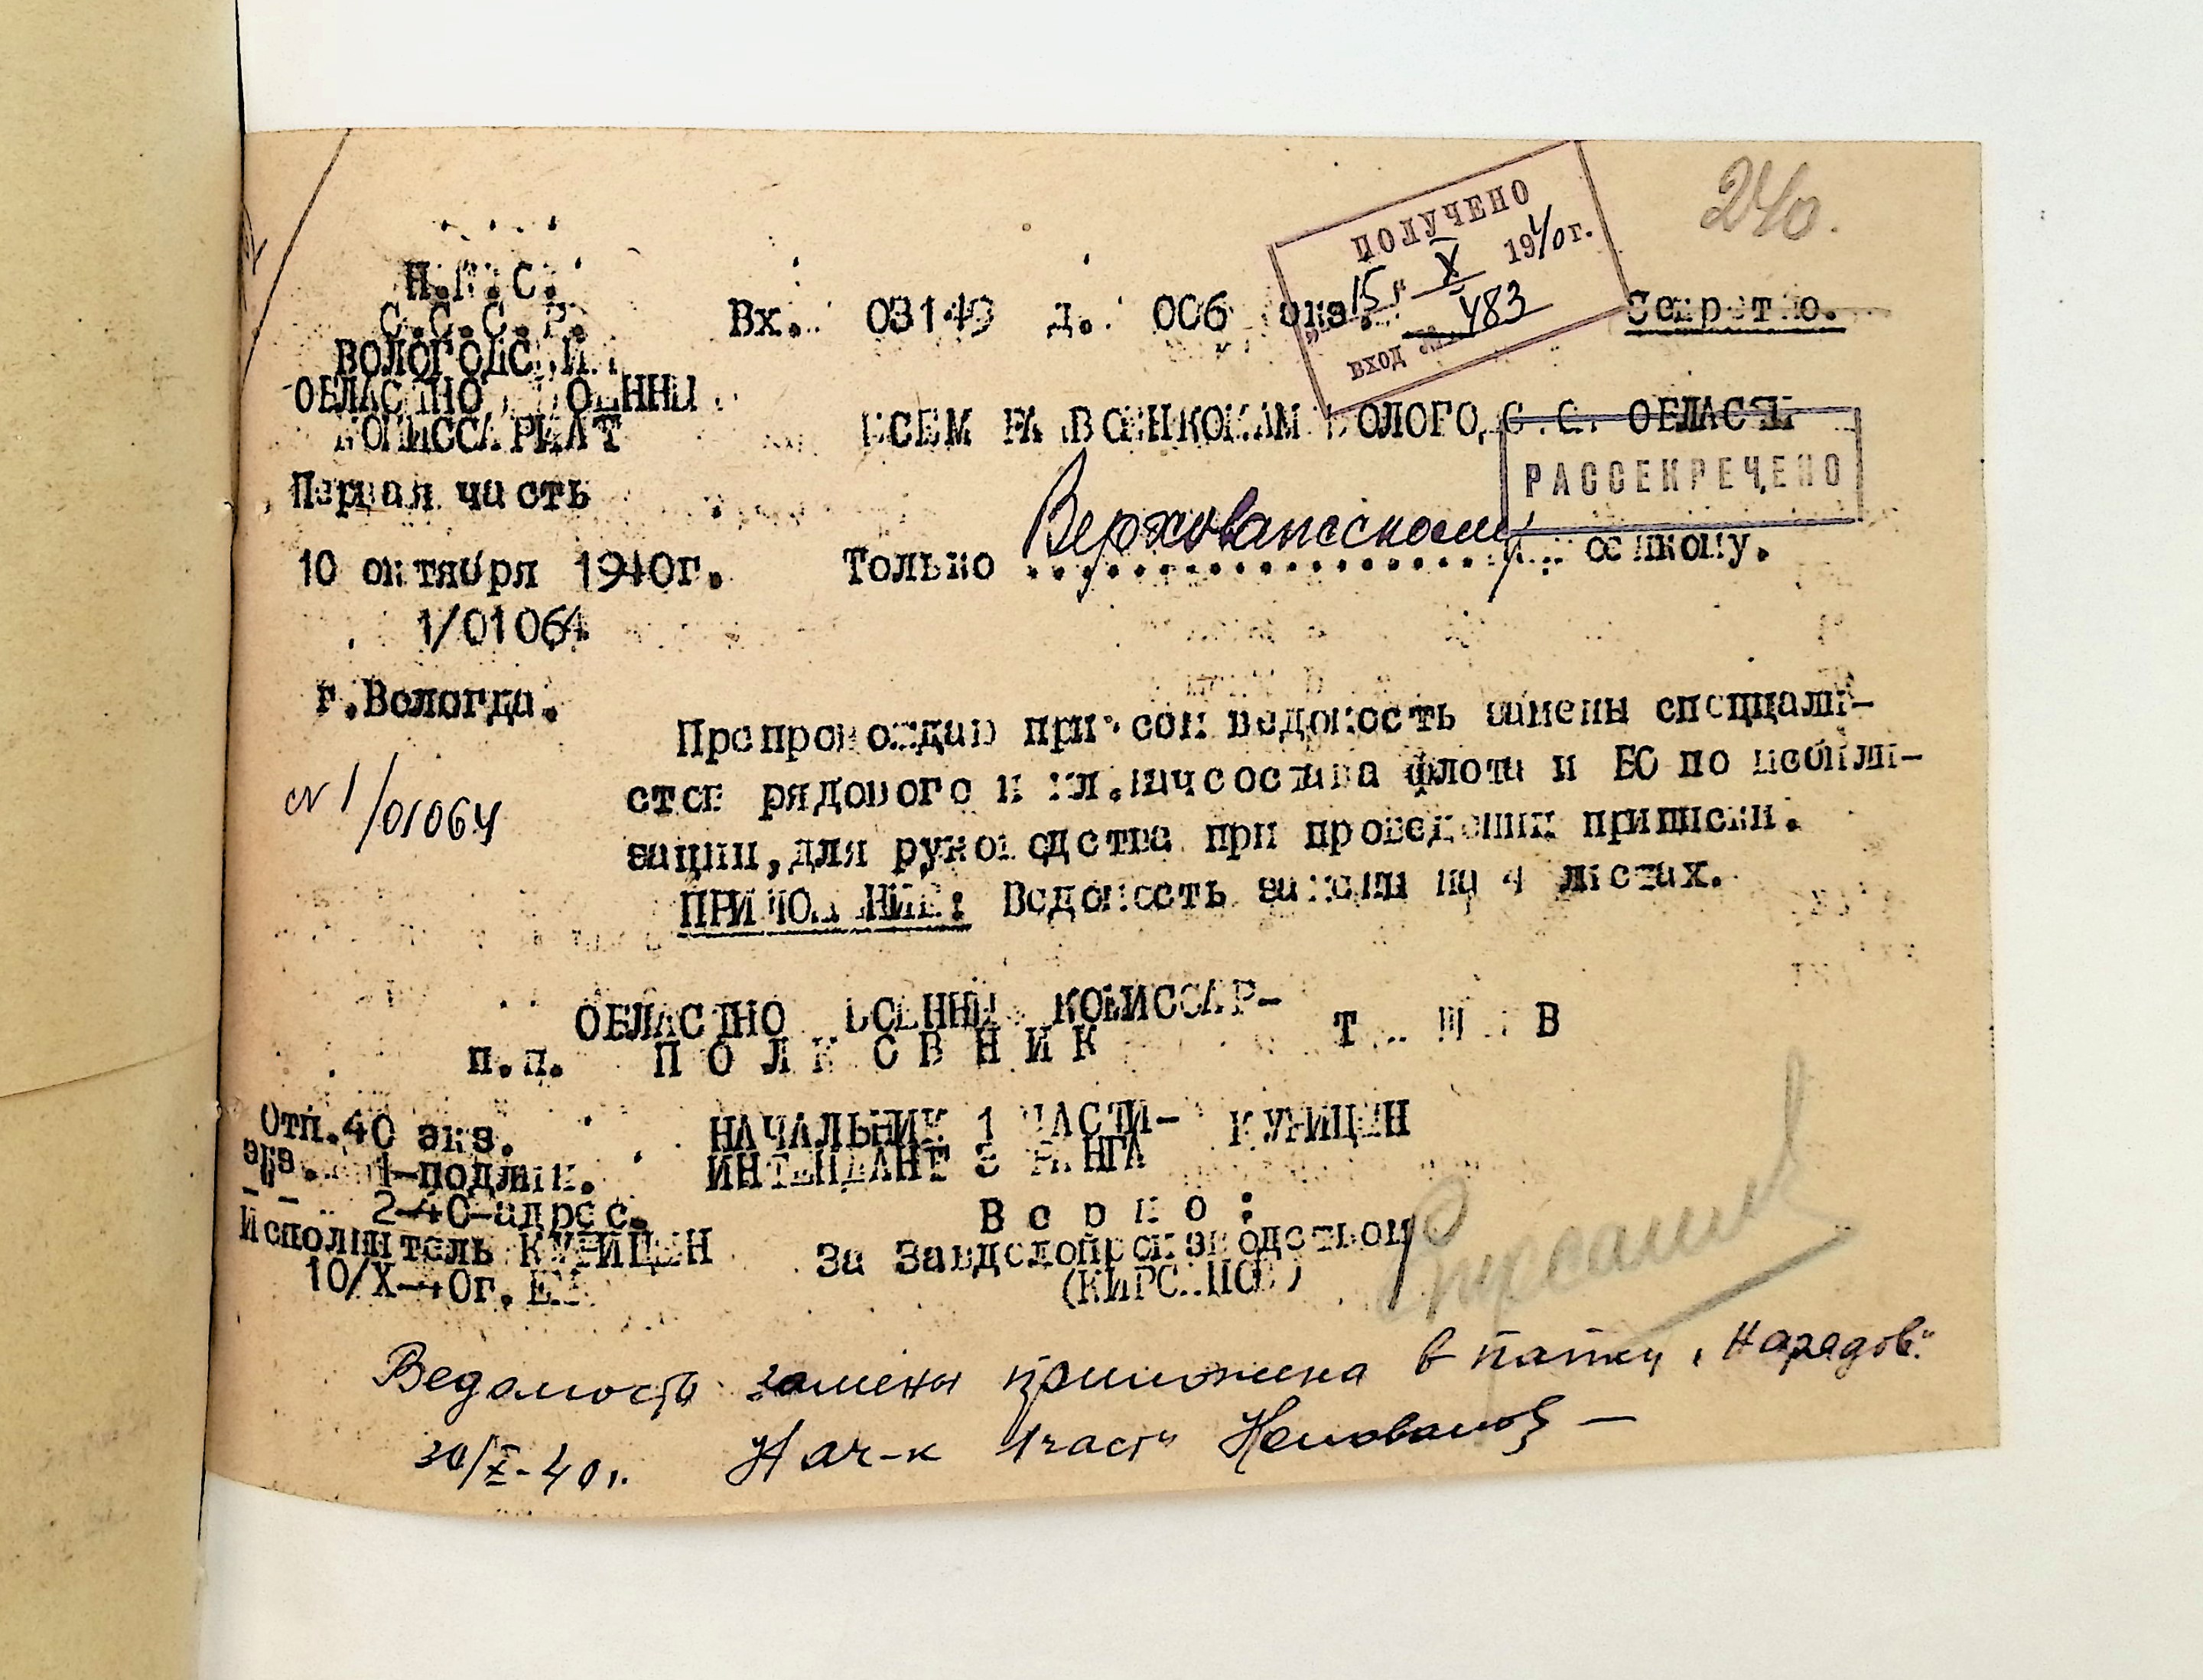 240.
ПОЛУЧЕНО
"15" X 1940г.
ВХОД № 483
Н.К.О.
С.С.С.Р.
ВОЛОГОДСКИЙ
ОБЛАСТНОЙ ВОЕННЫЙ
КОМИССАРИАТ
Первая часть
10 октября 1940г.
1/01064
г.Вологда.
№ 1/01064
Вх. 03149 д. 006 экз.
Секретно.
ВСЕМ РАЙВОЕНКОМАМ ВОЛОГОДСКОЙ ОБЛАСТИ
РАССЕКРЕЧЕНО
Только Верховажскому военкому.
Препровождаю при сем ведомость замены специали-
стов рядового и мл.начсостава флота и БО по мобили-
зации, для руководства при проведении приписки.
ПРИЛОЖЕНИЕ: Ведомость замены на 4 листах.
ОБЛАСТНОЙ ВОЕННЫЙ КОМИССАР-
п.п. ПОЛКОВНИК
НАЧАЛЬНИК 1 ЧАСТИ- КУНИЦЫН
ИНТЕНДАНТ 3 РАНГА
Отп.40 экз.
экз. 1-подлин.
2-40-адрес.
Исполнитель КУНИЦЫН
10/X-40г.
Верно:
За Завделопроизводством
Ведомость замены приложена в папку "Нарядов"
30/X-40г. Нач-к 1 части